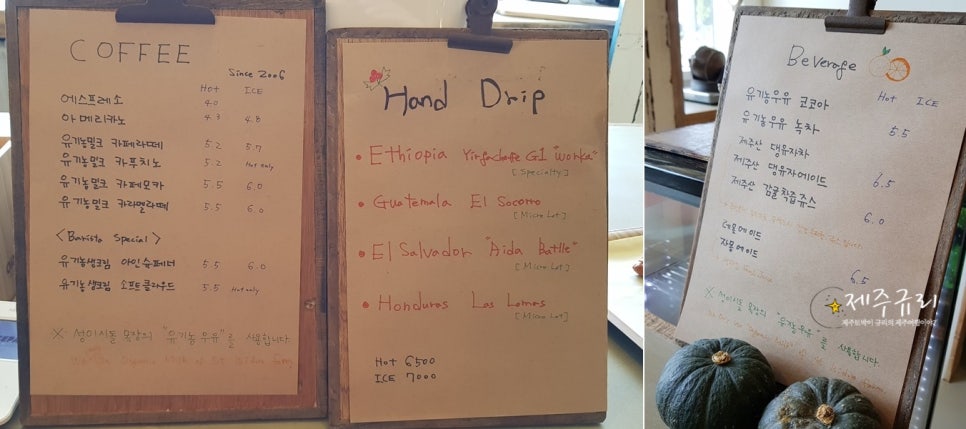 COFFEE
Since 2006
HOT ICE
에스프레소 4.0
아메리카노 4.3 4.8
유기농밀크 카페라떼 5.2 5.7
유기농밀크 카푸치노 5.2 Hot only
유기농밀크 카페모카 5.5 6.0
유기농밀크 카라멜라떼 5.5 6.0
<Barista Special>
유기농생크림 아인슈페너 5.5 6.0
유기농생크림 소프트클라우드 5.5 Hot only
※ 성이시돌 목장의 "유기농우유"를 사용합니다
Hand Drip
• Ethiopia Yirgacheffe G1 "Worka"
[Specialty]
• Guatemala El Socorro
[Micro Lot]
• El Salvador "Aida Batlle"
[Micro Lot]
• Honduras Las Lomas
[Micro Lot]
Hot 6500
ICE 7000
Beverage
Hot ICE
유기농우유 코코아
유기농우유 녹차 5.5
제주산 댕유자차
제주산 댕유자에이드 6.5
제주산 감귤착즙쥬스
6.0
레몬에이드
자몽에이드
6.5
※ 성이시돌 목장의 "유기농우유"를 사용합니다.
제주규리
제주토박이 규리의 제주여행이야기